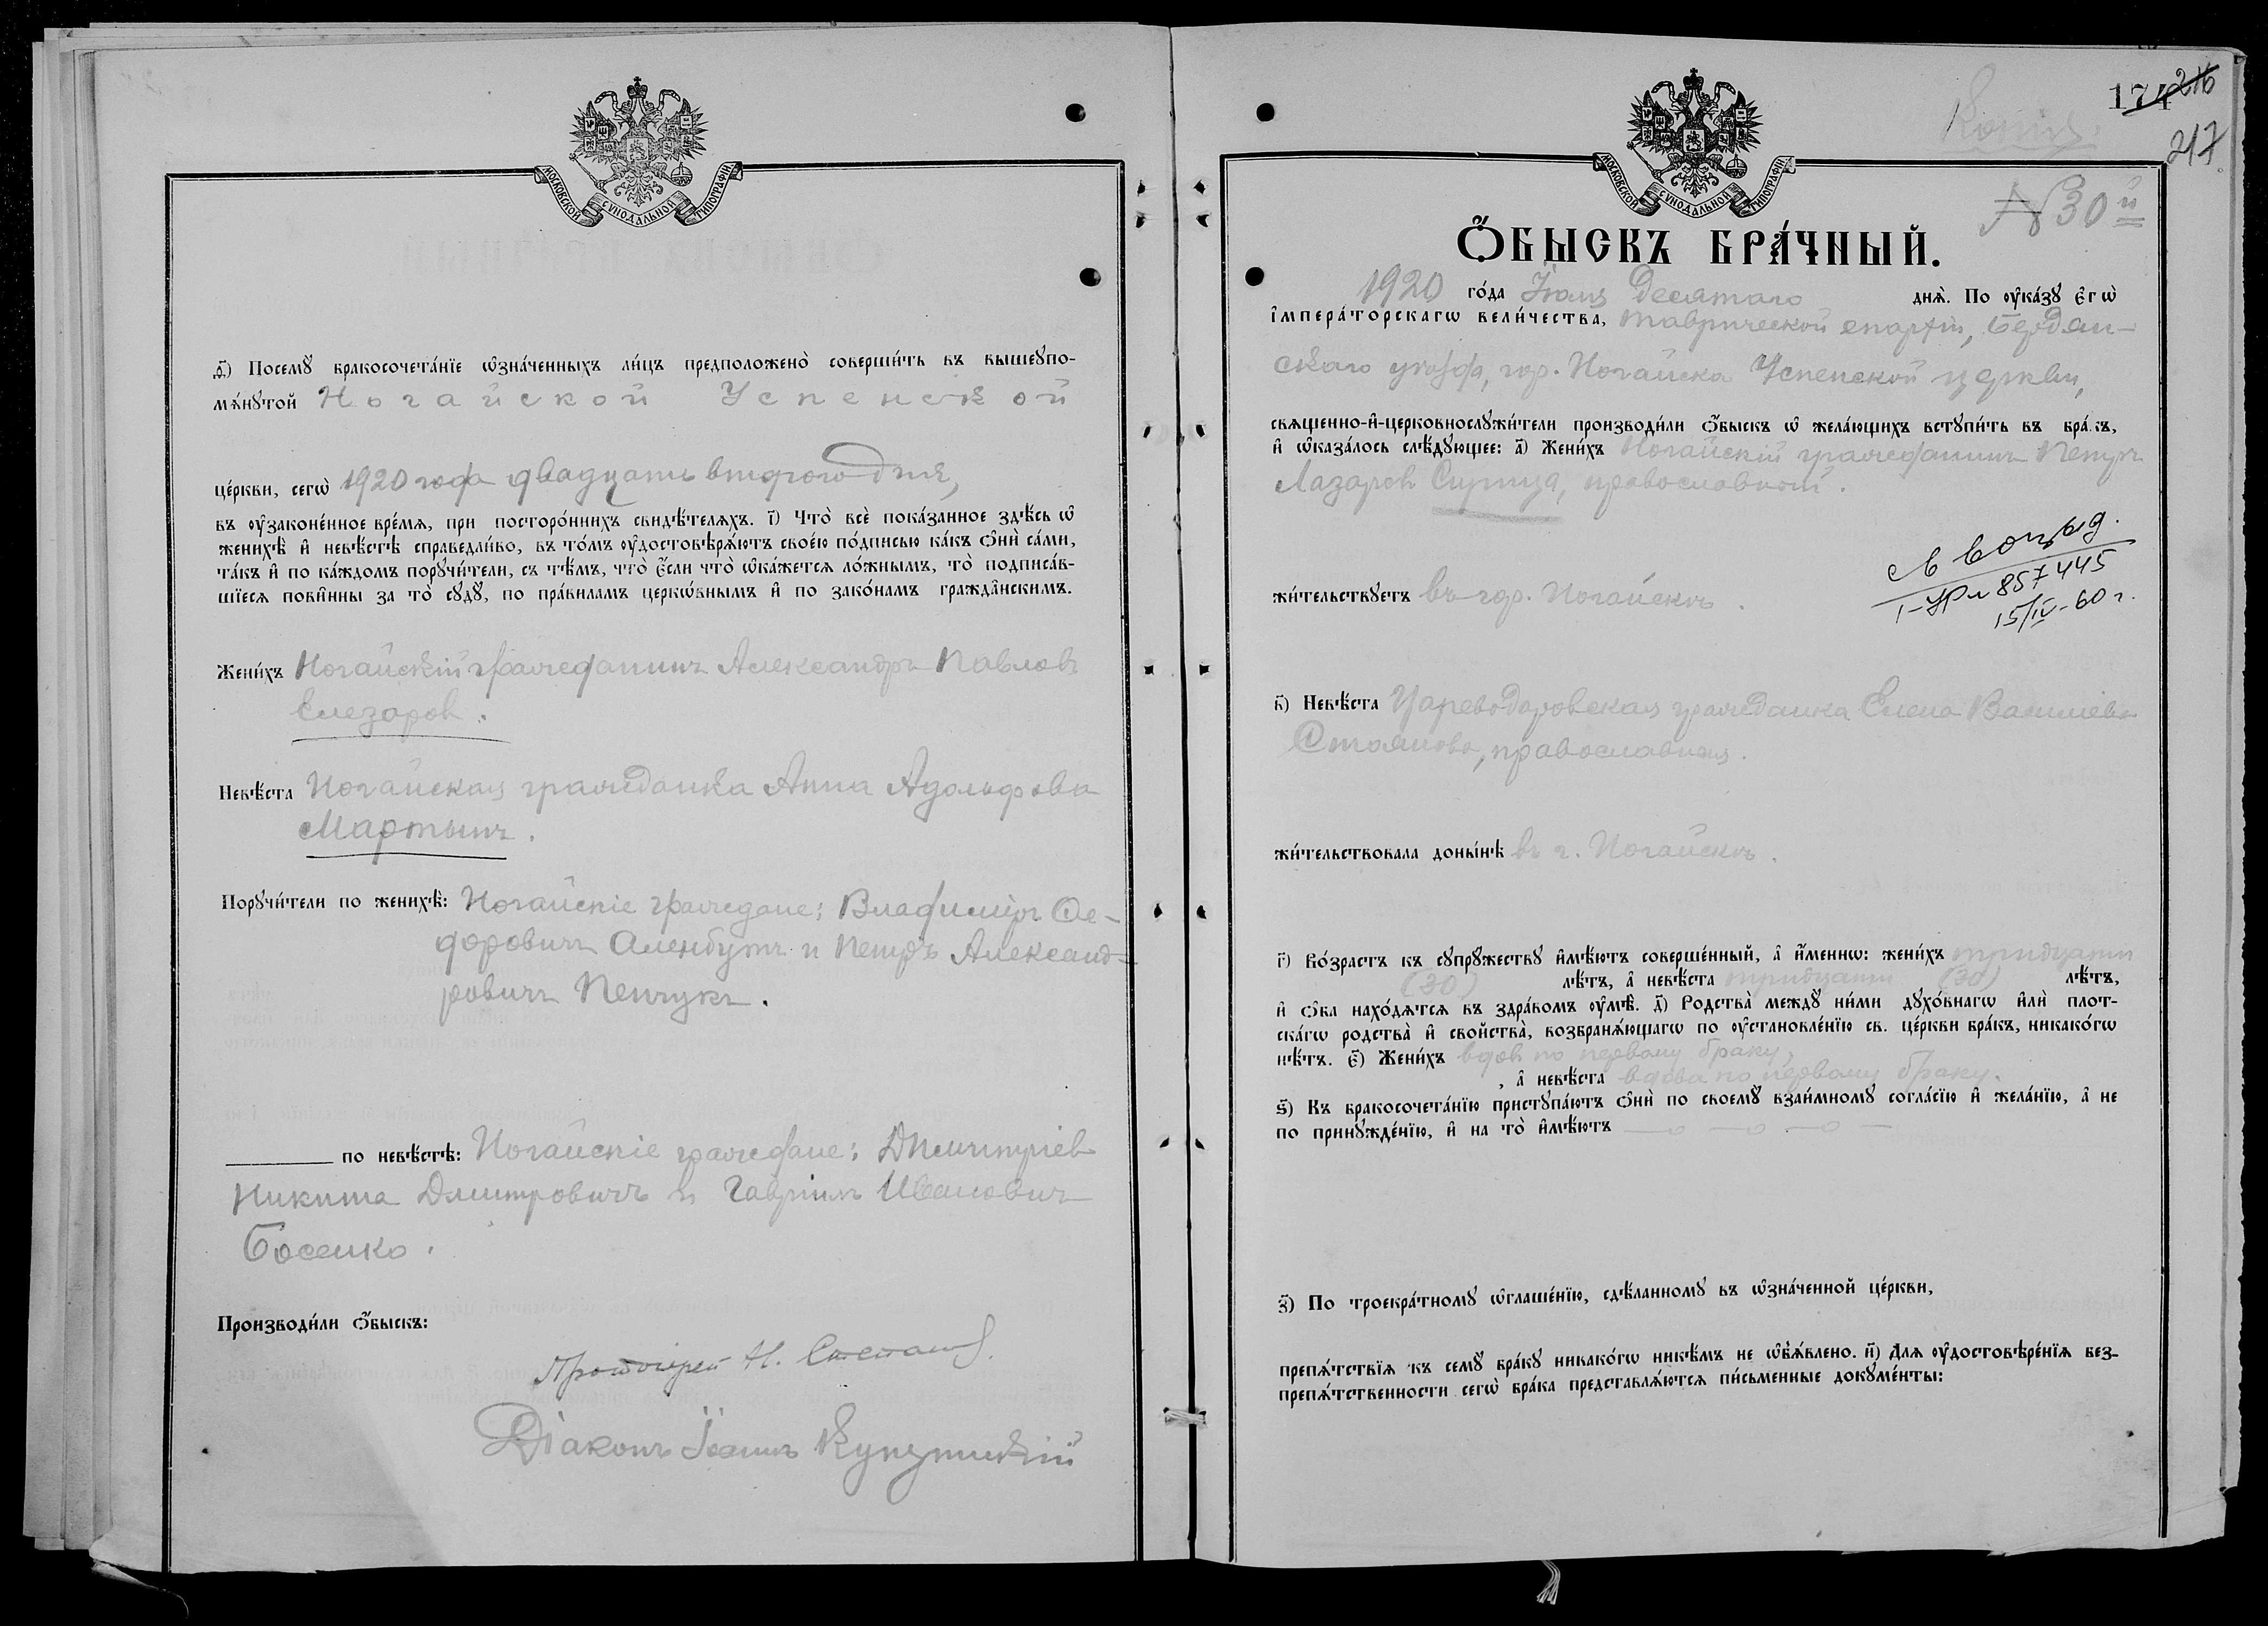 МОСКОВСКОЙ СѴНОДАЛЬНОЙ ТИПОГРАФІИ
ѳ҃) Посемꙋ̀ бракосочета́нїе ѡ҆зна́ченныхъ ли́цъ предположено̀ соверши́ть въ вышеꙋпо-
мѧ́нꙋтой Ногайской Успенской
це́ркви, сегѡ̀ 1920 года двадцать второго дня,
въ ᲂу҆законе́нное вре́мѧ, при посторо́ннихъ свидѣ́телѧхъ. і҃) Что̀ всѐ пока́занное здѣ́сь ѡ҆
женихѣ̀ и҆ невѣ́стѣ справедли́во, въ то́мъ ᲂу҆достовѣрѧ́ютъ свое́ю по́дписью ка́къ ѻ҆нѝ са́ми,
та́къ и҆ по ка́ждомъ порꙋчи́тели, съ тѣ́мъ, что̀ є҆́сли что̀ ѡ҆ка́жетсѧ ло́жнымъ, то̀ подписа́в-
шїесѧ пови́нны за то̀ сꙋдꙋ̀, по пра́виламъ церкѡ́внымъ и҆ по зако́намъ гражда́нскимъ.
Жени́хъ Ногайскій гражданинъ Александръ Павловъ
Елезаров.
Невѣ́ста Ногайская гражданка Анна Адольфова
Мартынъ.
Порꙋчи́тели по женихѣ̀: Ногайскіе граждане: Владиміръ Ѳе-
доровичъ Аленбутъ и Петръ Александ-
ровичъ Пенчукъ.
по невѣ́стѣ: Ногайскіе граждане: Дмитріев
Никита Дмитровичъ и Гавріилъ Иванович
Босенко.
Производи́ли ѻ҆́быскъ:
Протоіерей Н.
Діаконъ Іоаннъ
174 216
Копія
217
МОСКОВСКОЙ СѴНОДАЛЬНОЙ ТИПОГРАФІИ
№30й
Ѻ҆́БЫСКЪ БРА́ЧНЫЙ.
1920 го́да Іюля Десятаго днѧ̀. По ᲂу҆ка́зꙋ є҆гѡ̀
і҆мпера́торскагѡ вели́чества, Таврической епархіи, Бердян-
скаго уѣзда, гор. Ногайска Успенской церкви,
свѧще́нно-и҆-церковнослꙋжи́тели производи́ли ѻ҆́быскъ ѡ҆ жела́ющихъ встꙋпи́ть въ бра́къ,
и҆ ѡ҆каза́лось слѣ́дꙋющее: а҃) Жени́хъ Ногайскій гражданинъ Петръ
Лазарев Сирица, православной.
жи́тельствꙋетъ въ гор. Ногайскѣ.
I-УРл 857445
15/IV-60 г.
в҃) Невѣ́ста Цареводаровская гражданка Елена Василіева
Стоянова, православная.
жи́тельствовала доны́нѣ въ г. Ногайскѣ.
г҃) Во́зрастъ къ сꙋпрꙋ́жествꙋ и҆мѣ́ютъ соверше́нный, а҆ и҆́меннѡ: жени́хъ тридцати
(30) лѣ́тъ, а҆ невѣ́ста тридцати (30) лѣ́тъ,
и҆ ѻ҆́ба нахо́дѧтсѧ въ здра́вомъ ᲂу҆мѣ̀. д҃) Родства̀ междꙋ̀ ни́ми дꙋхо́внагѡ и҆лѝ плот-
ска́гѡ родства̀ и҆ свойства̀, возбранѧ́ющагѡ по ᲂу҆становле́нїю св. це́ркви бра́къ, никако́гѡ
нѣ́тъ. є҃) Жени́хъ вдов по первому браку,
, а҆ невѣ́ста вдова по первому браку.
ѕ҃) Къ бракосочета́нїю пристꙋпа́ютъ ѻ҆нѝ по своемꙋ̀ взаи́мномꙋ согла́сїю и҆ жела́нїю, а҆ не
по принꙋжде́нїю, и҆ на то̀ и҆мѣ́ютъ
з҃) По троекра́тномꙋ ѡ҆глаше́нїю, сдѣ́ланномꙋ въ ѡ҆зна́ченной це́ркви,
препѧ́тствїѧ къ семꙋ̀ бра́кꙋ никако́гѡ никѣ́мъ не ѡ҆б̾ѧ́влено. и҃) Для ᲂу҆достовѣре́нїѧ без-
препѧ́тственности сегѡ̀ бра́ка представлѧ́ютсѧ пи́сьменные докꙋме́нты: